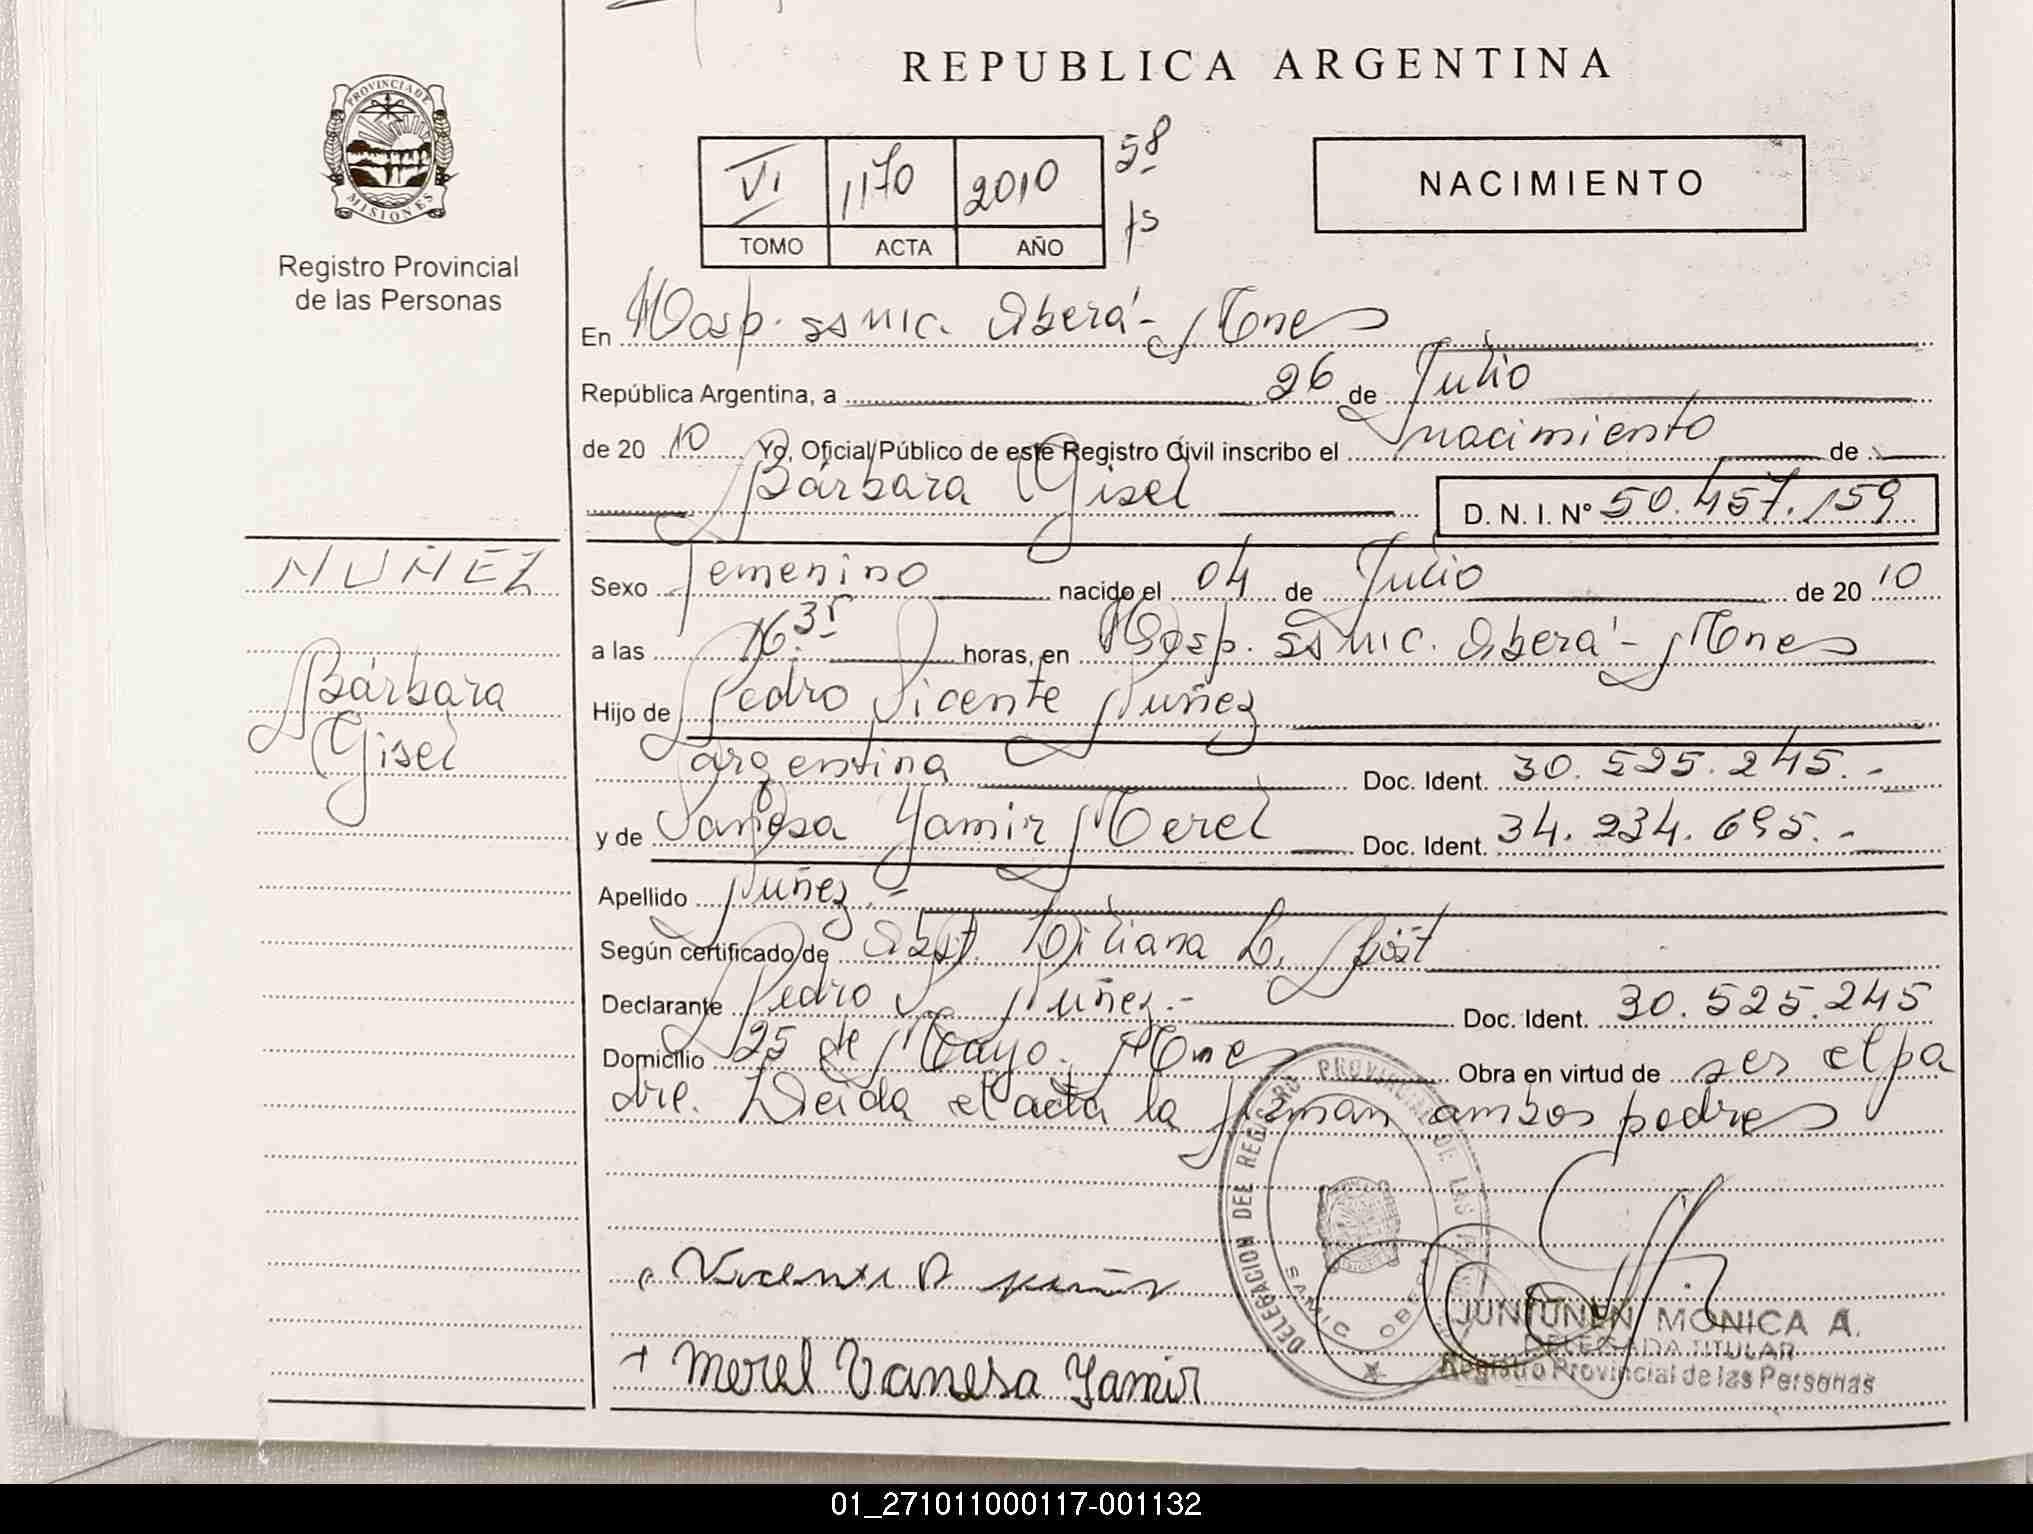 REPUBLICA ARGENTINA
PROVINCIA DE
MISIONES
Registro Provincial
de las Personas
VI 1170 2010 58
TOMO ACTA AÑO fs
NACIMIENTO
En Hosp. SAMIC. Oberá - Mnes
República Argentina, a 26 de Julio
de 20 10 Yo, Oficial Público de este Registro Civil inscribo el nacimiento de
Bárbara Gisel D. N. I. Nº 50.457.159
NUÑEZ
Bárbara
Gisel
Sexo Femenino nacido el 04 de Julio de 20 10
a las 16.35 horas, en Hosp. SAMIC. Oberá - Mnes
Hijo de Pedro Vicente Nuñez
argentina Doc. Ident. 30.525.245.-
y de Vanesa Yamir Merel Doc. Ident. 34.234.695.-
Apellido Nuñez.-
Según certificado de Obst. Liliana L.
Declarante Pedro V. Nuñez.- Doc. Ident. 30.525.245
Domicilio 25 de Mayo. Mnes Obra en virtud de ser el pa
dre. Leida el acta la firman ambos padres
DELEGACION DEL REGISTRO PROVINCIAL DE LAS
SAMIC OBERA
Vicente P Nuñez
+ Merel Vanesa Yamir
JUNTUNEN MONICA A.
DELEGADA TITULAR
Registro Provincial de las Personas
01_271011000117-001132